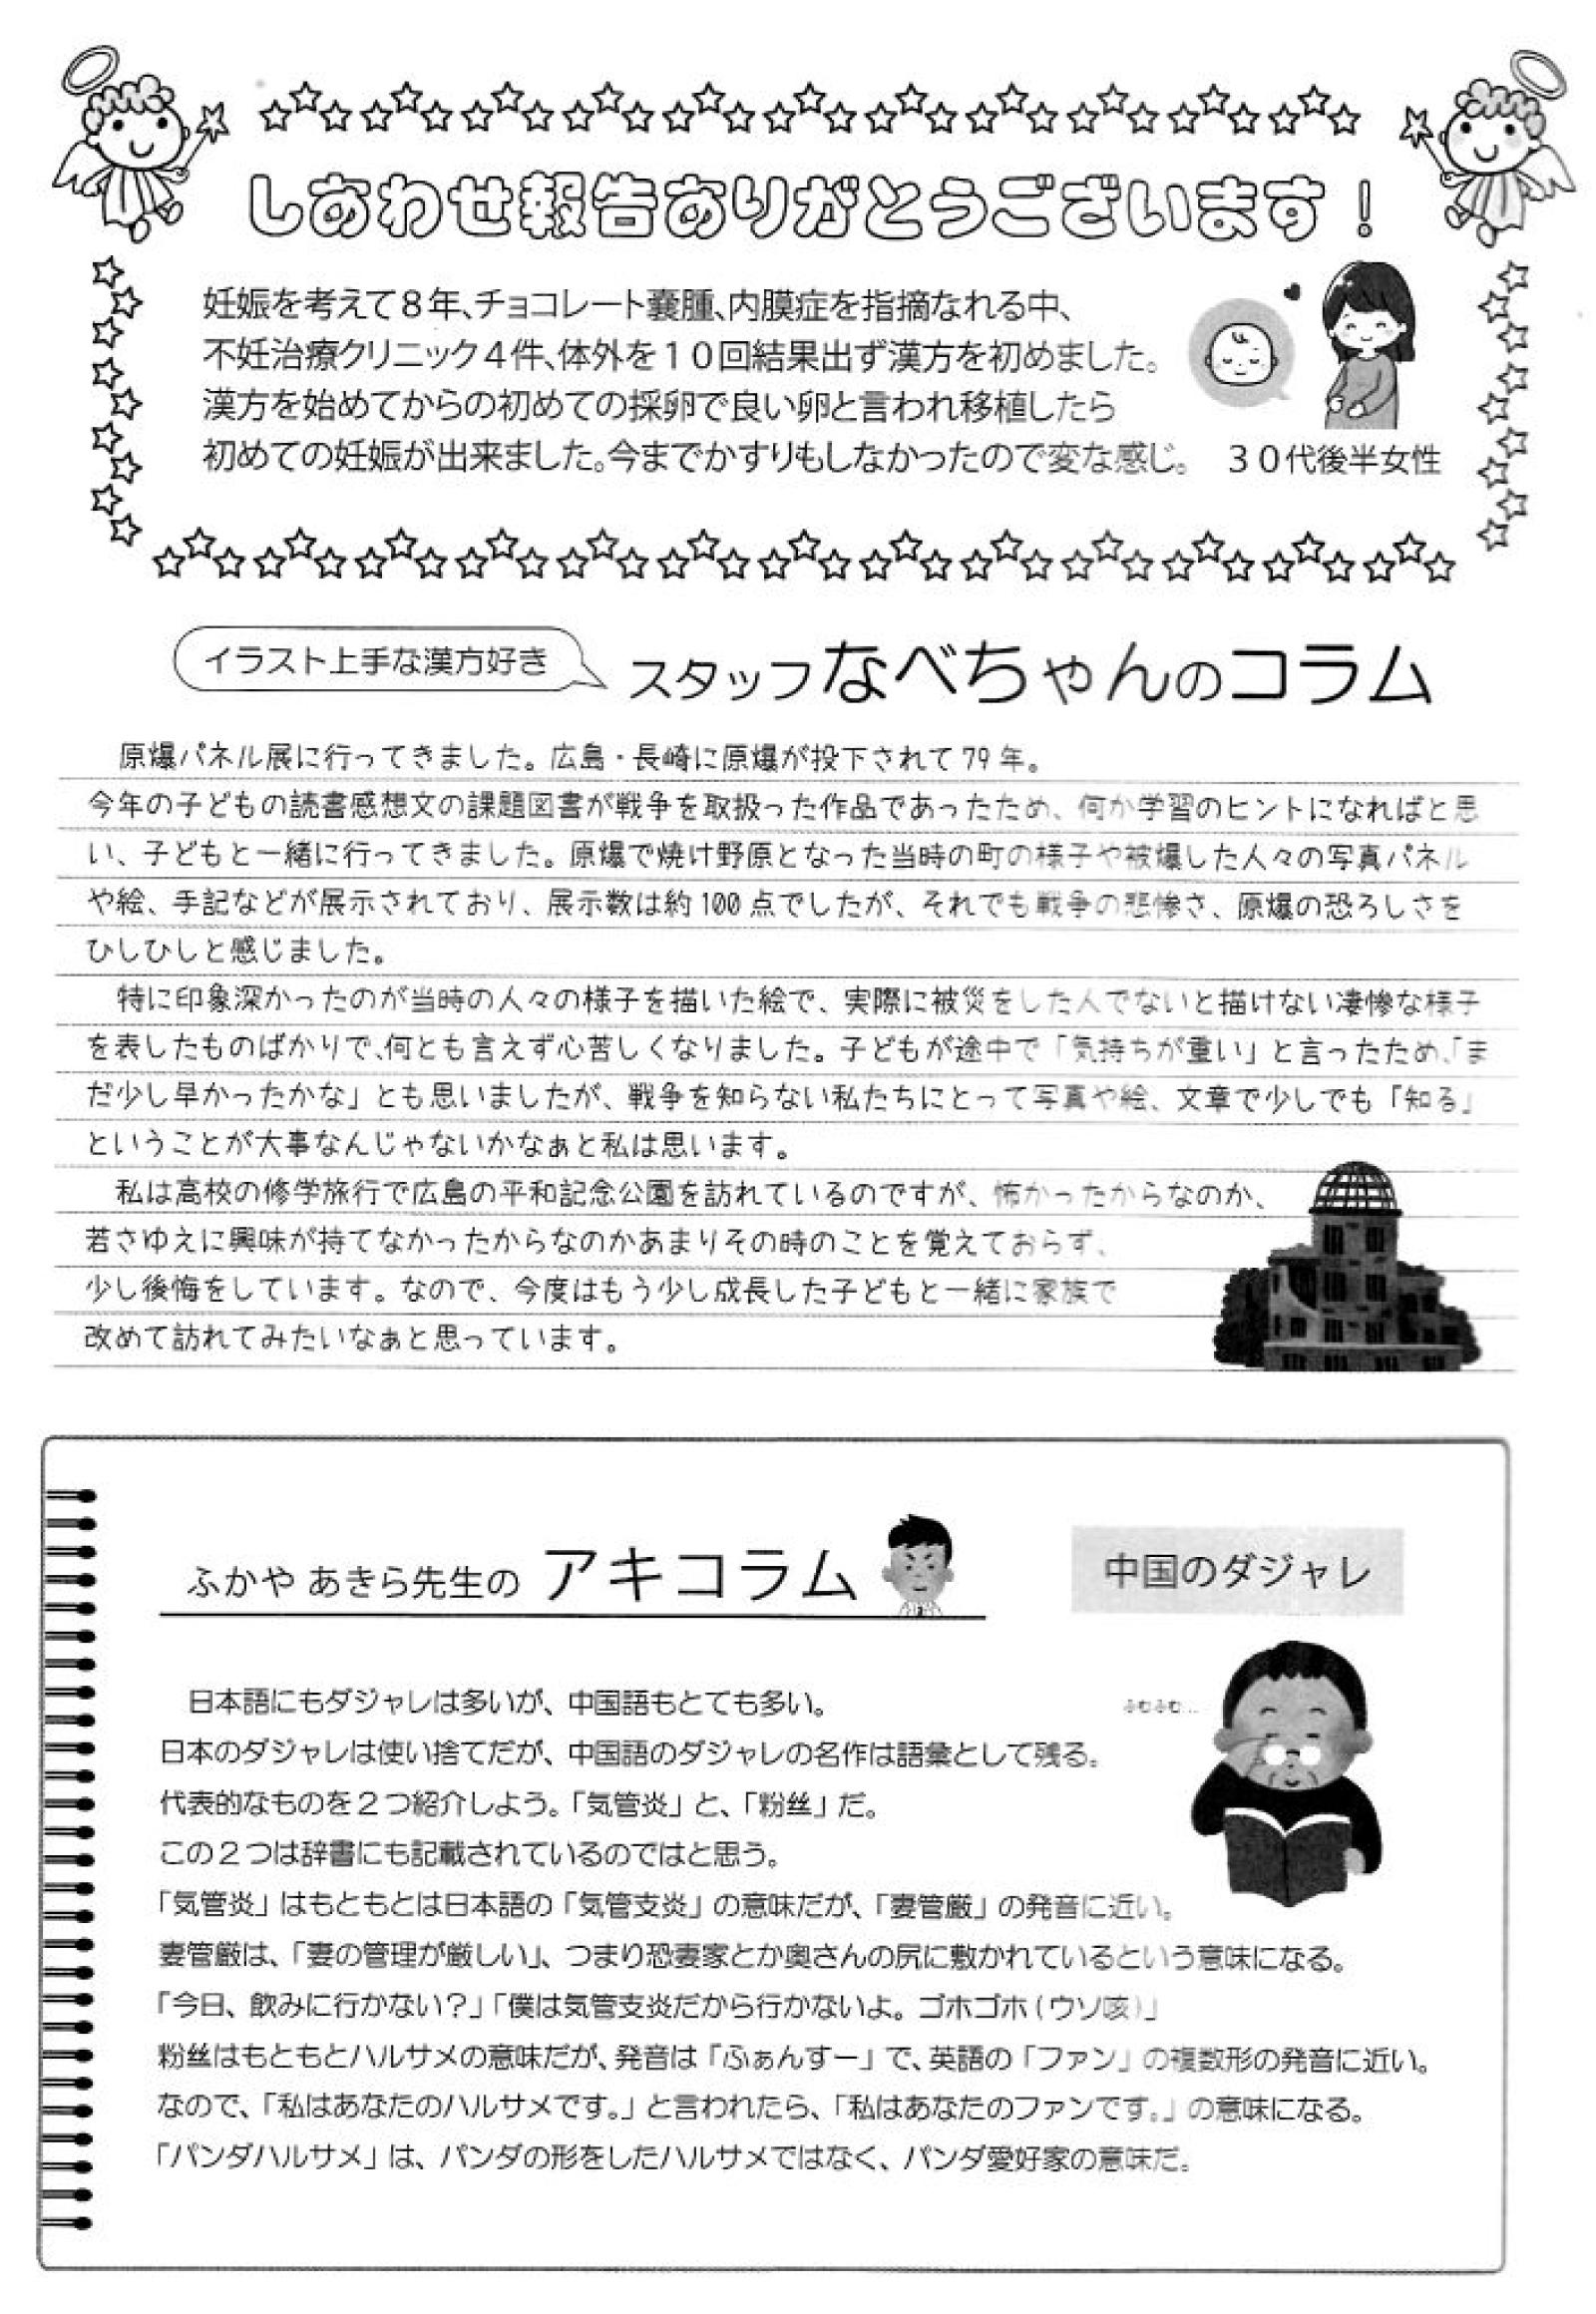 しあわせ報告ありがとうございます！
妊娠を考えて８年、チョコレート嚢腫、内膜症を指摘なれる中、
不妊治療クリニック４件、体外を１０回結果出ず漢方を初めました。
漢方を始めてからの初めての採卵で良い卵と言われ移植したら
初めての妊娠が出来ました。今までかすりもしなかったので変な感じ。　３０代後半女性
イラスト上手な漢方好き
スタッフなべちゃんのコラム
原爆パネル展に行ってきました。広島・長崎に原爆が投下されて79年。
今年の子どもの読書感想文の課題図書が戦争を取扱った作品であったため、何か学習のヒントになればと思
い、子どもと一緒に行ってきました。原爆で焼け野原となった当時の町の様子や被爆した人々の写真パネル
や絵、手記などが展示されており、展示数は約100点でしたが、それでも戦争の悲惨さ、原爆の恐ろしさを
ひしひしと感じました。
特に印象深かったのが当時の人々の様子を描いた絵で、実際に被災をした人でないと描けない凄惨な様子
を表したものばかりで、何とも言えず心苦しくなりました。子どもが途中で「気持ちが重い」と言ったため、「ま
だ少し早かったかな」とも思いましたが、戦争を知らない私たちにとって写真や絵、文章で少しでも「知る」
ということが大事なんじゃないかなぁと私は思います。
私は高校の修学旅行で広島の平和記念公園を訪れているのですが、怖かったからなのか、
若さゆえに興味が持てなかったからなのかあまりその時のことを覚えておらず、
少し後悔をしています。なので、今度はもう少し成長した子どもと一緒に家族で
改めて訪れてみたいなぁと思っています。
ふかや あきら先生の アキコラム
中国のダジャレ
ふむふむ…
日本語にもダジャレは多いが、中国語もとても多い。
日本のダジャレは使い捨てだが、中国語のダジャレの名作は語彙として残る。
代表的なものを２つ紹介しよう。「気管炎」と、「粉丝」だ。
この２つは辞書にも記載されているのではと思う。
「気管炎」はもともとは日本語の「気管支炎」の意味だが、「妻管厳」の発音に近い。
妻管厳は、「妻の管理が厳しい」、つまり恐妻家とか奥さんの尻に敷かれているという意味になる。
「今日、飲みに行かない？」「僕は気管支炎だから行かないよ。ゴホゴホ（ウソ咳）」
粉丝はもともとハルサメの意味だが、発音は「ふぁんすー」で、英語の「ファン」の複数形の発音に近い。
なので、「私はあなたのハルサメです。」と言われたら、「私はあなたのファンです。」の意味になる。
「パンダハルサメ」は、パンダの形をしたハルサメではなく、パンダ愛好家の意味だ。